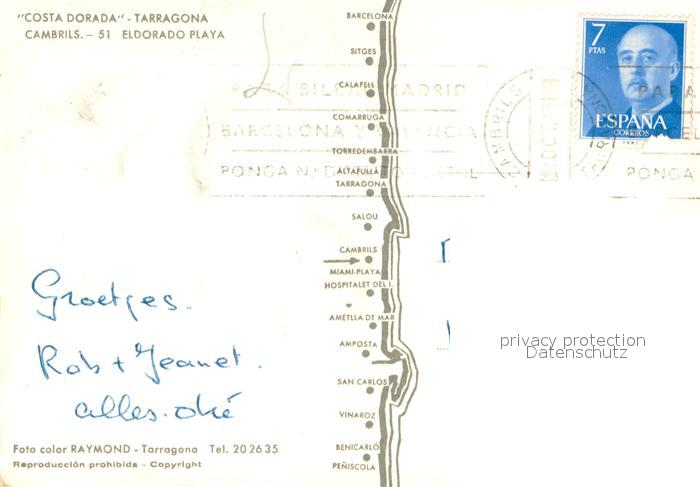 "COSTA DORADA" - TARRAGONA
CAMBRILS. – 51 ELDORADO PLAYA
BARCELONA
SITGES
CALAFELL
COMARRUGA
TORREDEMBARRA
ALTAFULLA
TARRAGONA
SALOU
CAMBRILS
MIAMI-PLAYA
HOSPITALET DEL I.
AMETLLA DE MAR
AMPOSTA
SAN CARLOS
VINAROZ
BENICARLÓ
PEÑISCOLA
7
PTAS
ESPAÑA
CORREOS
PARA BILBAO MADRID
BARCELONA Y VALENCIA
PONGA N. DISTRITO POSTAL
CAMBRILS
PARA
PONGA
Groetjes.
Rob + Jeanet.
alles. oké
privacy protection
Datenschutz
Foto color RAYMOND - Tarragona Tel. 20 26 35
Reproducción prohibida - Copyright